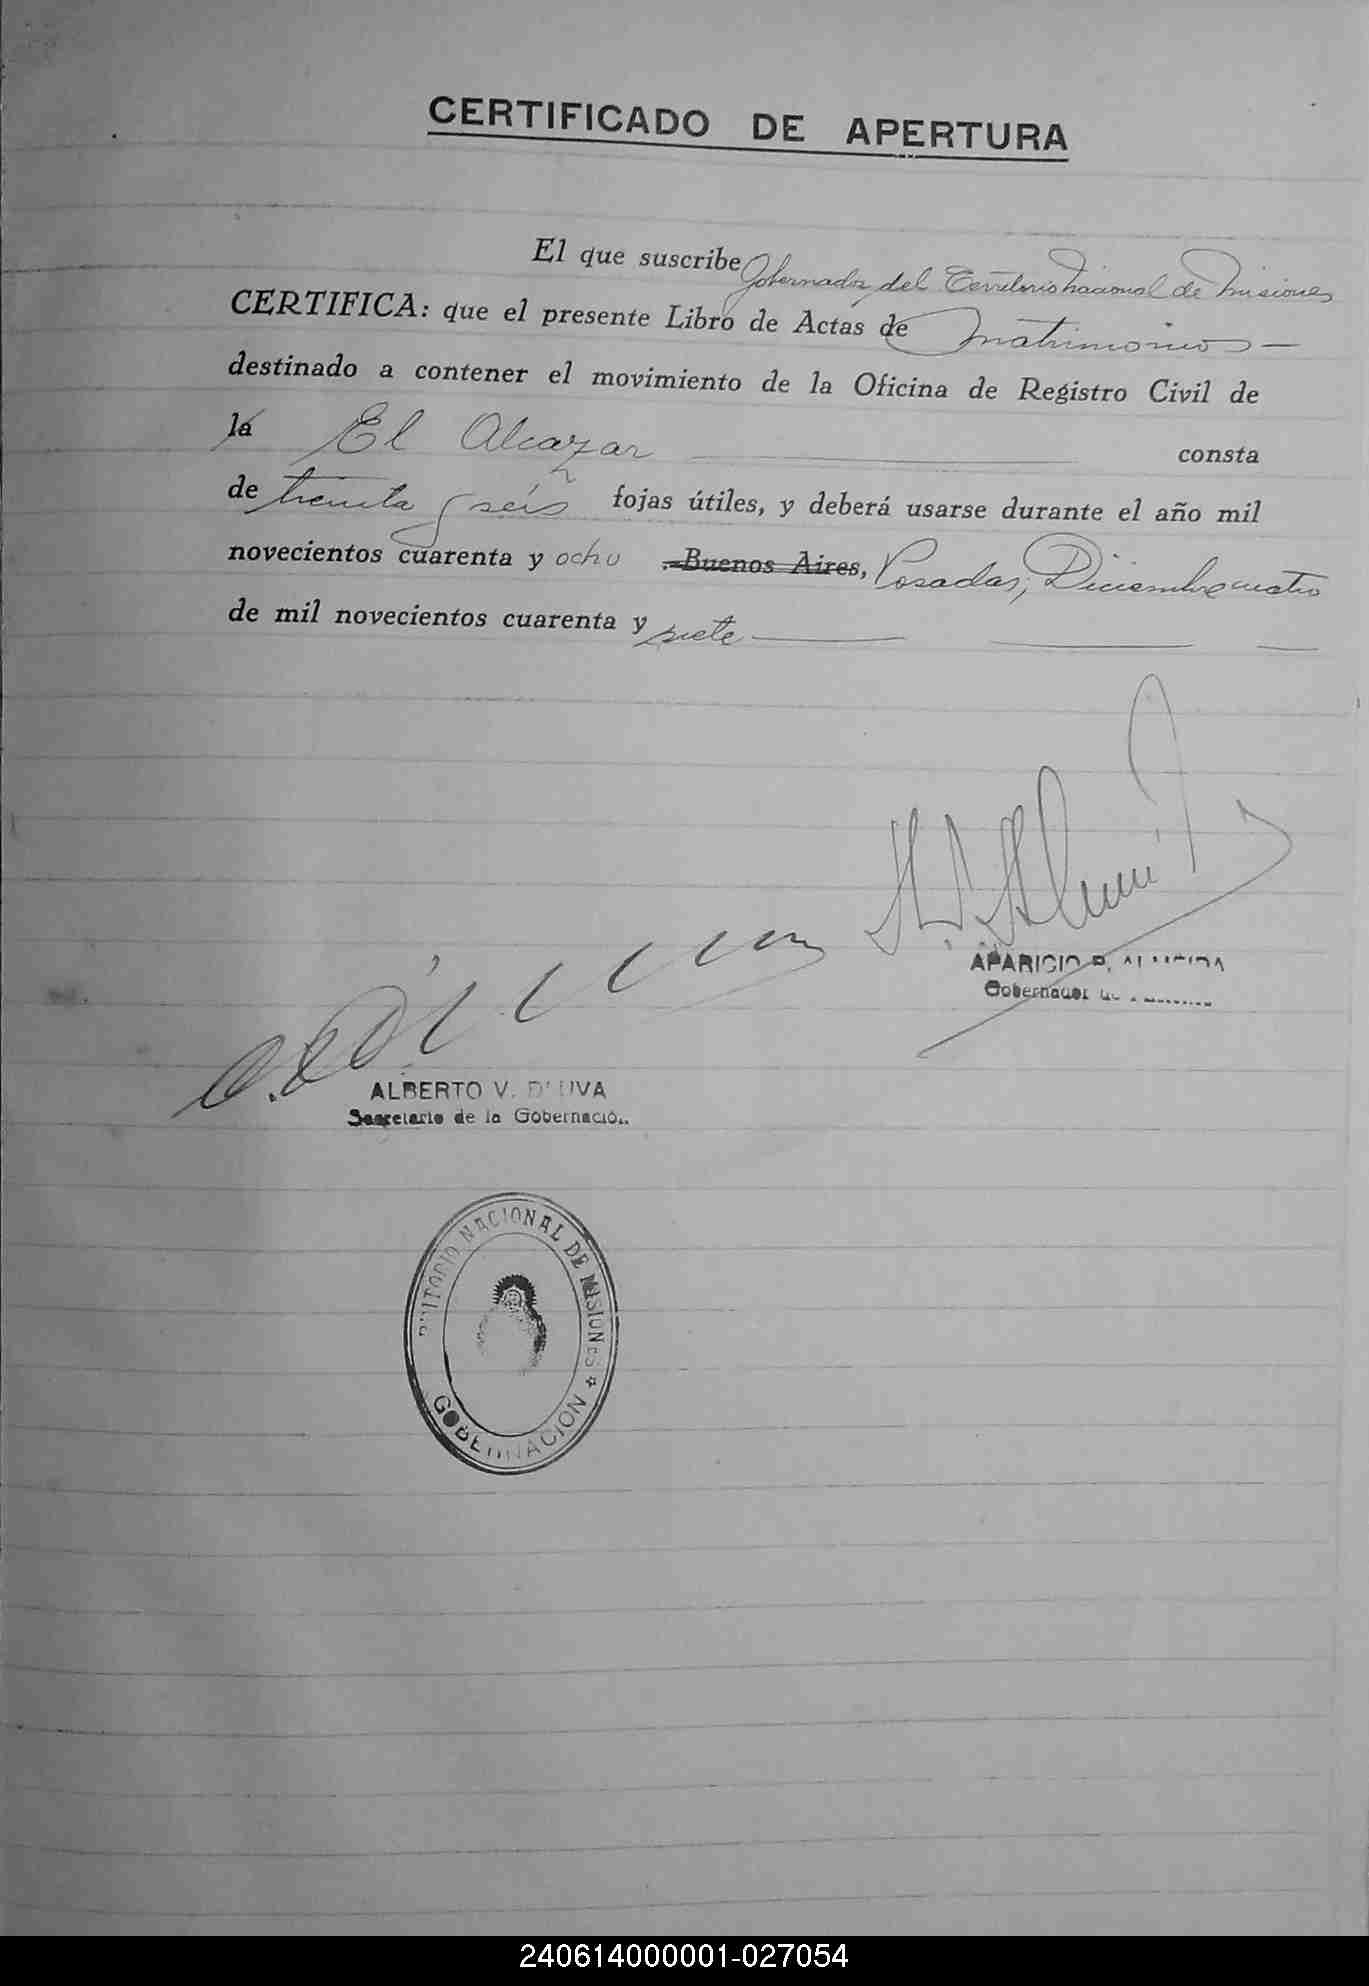 CERTIFICADO DE APERTURA
El que suscribe Gobernador del Territorio Nacional de Misiones
CERTIFICA: que el presente Libro de Actas de Matrimonios
destinado a contener el movimiento de la Oficina de Registro Civil de
la El Alcazar consta
de treinta y seis fojas útiles, y deberá usarse durante el año mil
novecientos cuarenta y ocho .-Buenos Aires, Posadas, Diciembre cuatro
de mil novecientos cuarenta y siete
APARICIO
Gobernador
ALBERTO V. D'UVA
Secretario de la Gobernación
TERRITORIO NACIONAL DE MISIONES
GOBERNACION
240614000001-027054